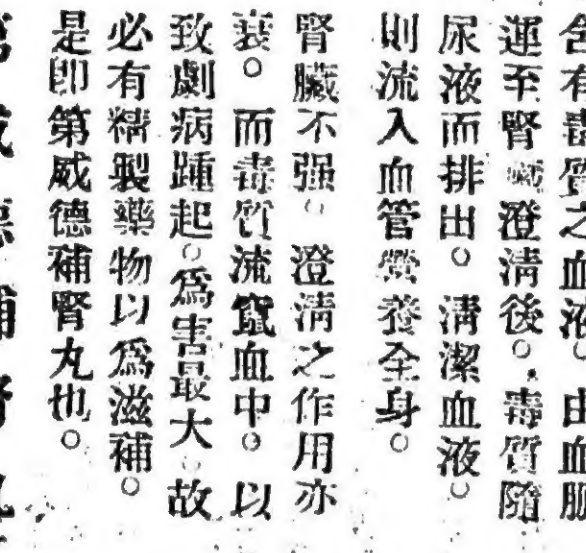 含有毒質之血液。由血脈
運至腎臟澄清後。毒質隨
尿液而排出。清潔血液。
則流入血管營養全身。
腎臟不强。澄清之作用亦
衰。而毒質流竄血中。以
致劇病踵起。為害最大。故
必有精製藥物以為滋補。
是卽第威德補腎丸也。
第威德補腎丸